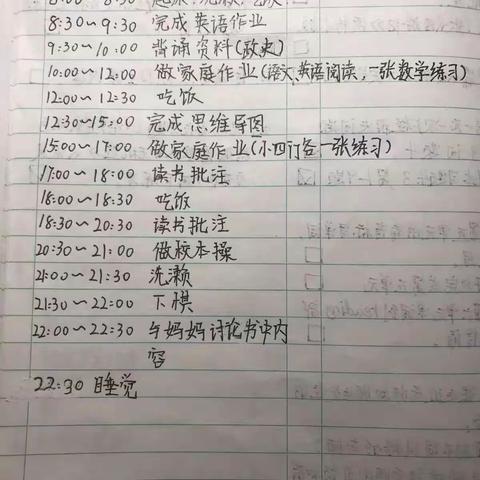 8:30~9:30 完成英语作业
9:30~10:00 背诵资料(政史)
10:00~12:00 做家庭作业(语文,英语阅读,一张数学练习)
12:00~12:30 吃饭
12:30~15:00 完成思维导图
15:00~17:00 做家庭作业(小四门各一张练习)
17:00~18:00 读书批注
18:00~18:30 吃饭
18:30~20:30 读书批注
20:30~21:00 做校本操
21:00~21:30 洗漱
21:30~22:00 下棋
22:00~22:30 与妈妈讨论书中内
容
22:30 睡觉